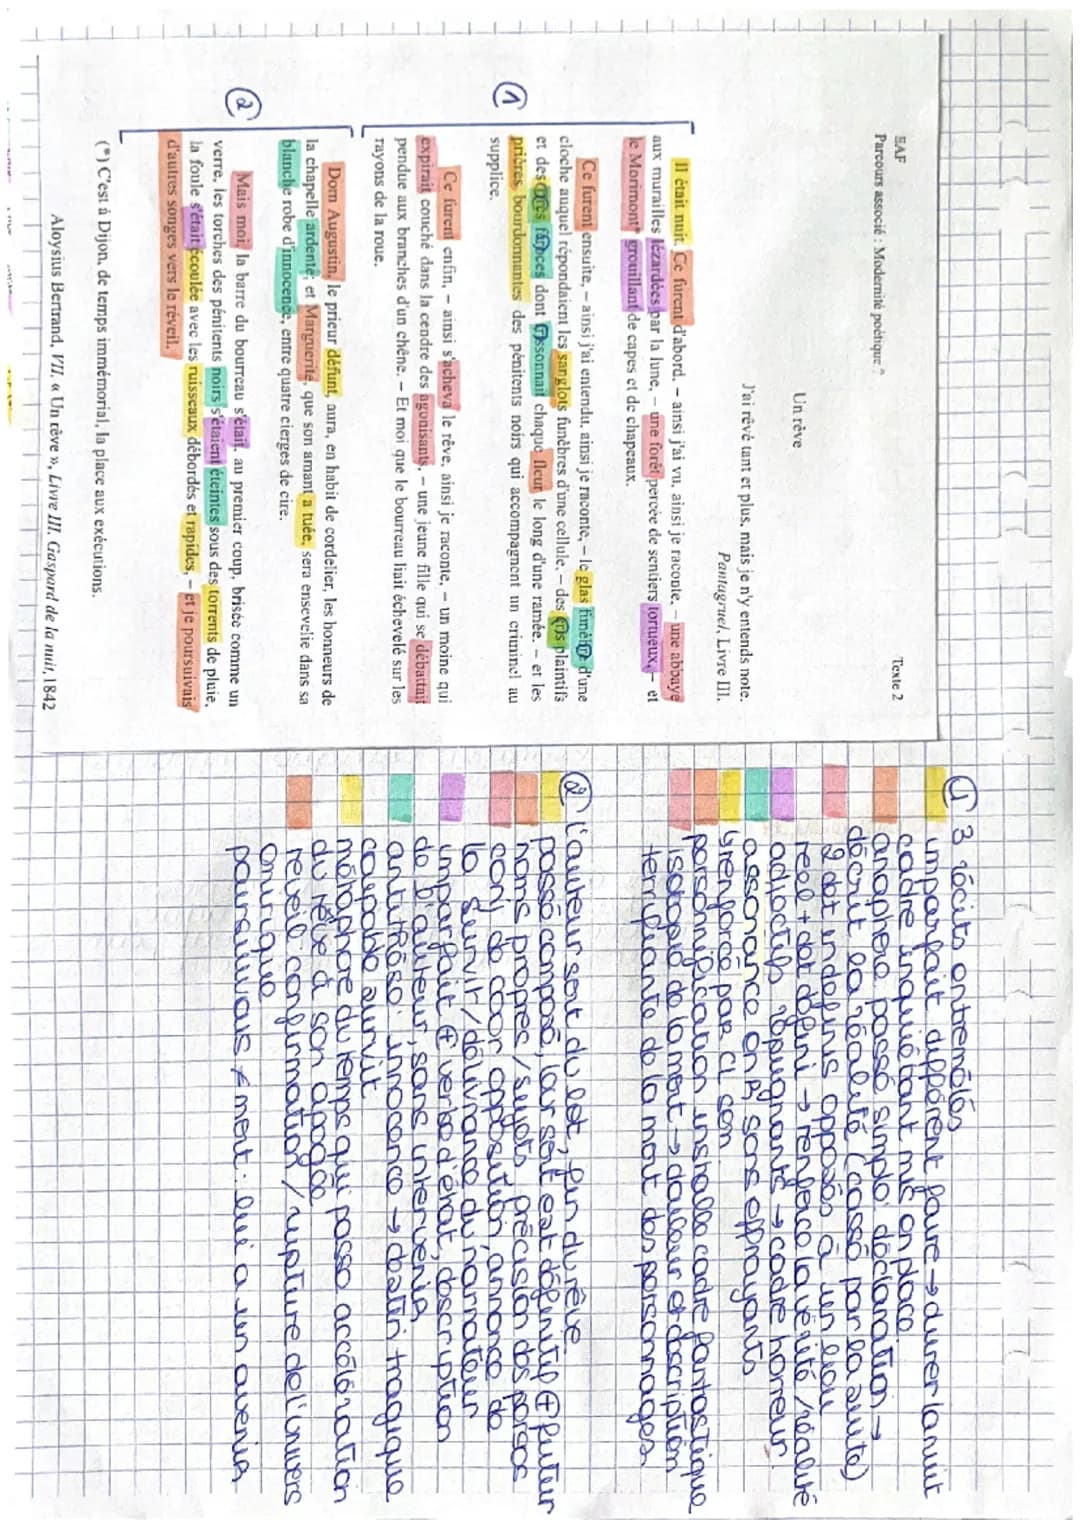 SAF
Texte 2
Parcours associé : Modernité poétique ?
Un rêve
J'ai rêvé tant et plus, mais je n'y entends note.
Pantagruel, Livre III.
Il était nuit. Ce furent d'abord, – ainsi j'ai vu, ainsi je raconte, – une abbaye
aux murailles lézardées par la lune, – une forêt percée de sentiers tortueux, – et
le Morimont* grouillant de capes et de chapeaux.
Ce furent ensuite, – ainsi j'ai entendu, ainsi je raconte, – le glas funèbre d'une
cloche auquel répondaient les sanglots funèbres d'une cellule, – des cris plaintifs
et des rires féroces dont frissonnait chaque fleur le long d'une ramée, – et les
prières bourdonnantes des pénitents noirs qui accompagnent un criminel au
supplice.
Ce furent enfin, – ainsi s'acheva le rêve, ainsi je raconte, – un moine qui
expirait couché dans la cendre des agonisants, – une jeune fille qui se débattait
pendue aux branches d'un chêne. – Et moi que le bourreau liait échevelé sur les
rayons de la roue.
Dom Augustin, le prieur défunt, aura, en habit de cordelier, les honneurs de
la chapelle ardente; et Marguerite, que son amant a tuée, sera ensevelie dans sa
blanche robe d'innocence, entre quatre cierges de cire.
Mais moi, la barre du bourreau s'était, au premier coup, brisée comme un
verre, les torches des pénitents noirs s'étaient éteintes sous des torrents de pluie,
la foule s'était écoulée avec les ruisseaux débordés et rapides, – et je poursuivais
d'autres songes vers le réveil.
(*) C'est à Dijon, de temps immémorial, la place aux exécutions.
Aloysius Bertrand, VII. « Un rêve », Livre III. Gaspard de la nuit, 1842
①
②
① 3 récits entremêlés
imparfait différent faire → durer la nuit
cadre inquiétant mis en place
anaphore passé simple: déclaration →
décrit la réalité (cassé par la suite)
2 det indéfinis opposés à un lieu
réel + det défini → renforce la vérité / réalité
adjectifs répugnants → cadre horreur
assonance en R, sons effrayants
renforcé par CL son
personnification installe cadre fantastique
isotopie de la mort → douleur et description
terrifiante de la mort des personnages
② l'auteur sort du lot, fin du rêve
passé composé, leur sort est définitif ⊕ futur
noms propres / sujets précision des persos
conj de coor opposition, annonce de
la survie / délivrance du narrateur
imparfait ⊕ verbe d'état, description
de l'auteur, sans intervenir
antithèse: innocence → destin tragique
coupable survit
métaphore du temps qui passe accélération
du rêve à son apogée
réveil: confirmation / rupture de l'univers
onirique
poursuivais ≠ mort: lui a un avenir